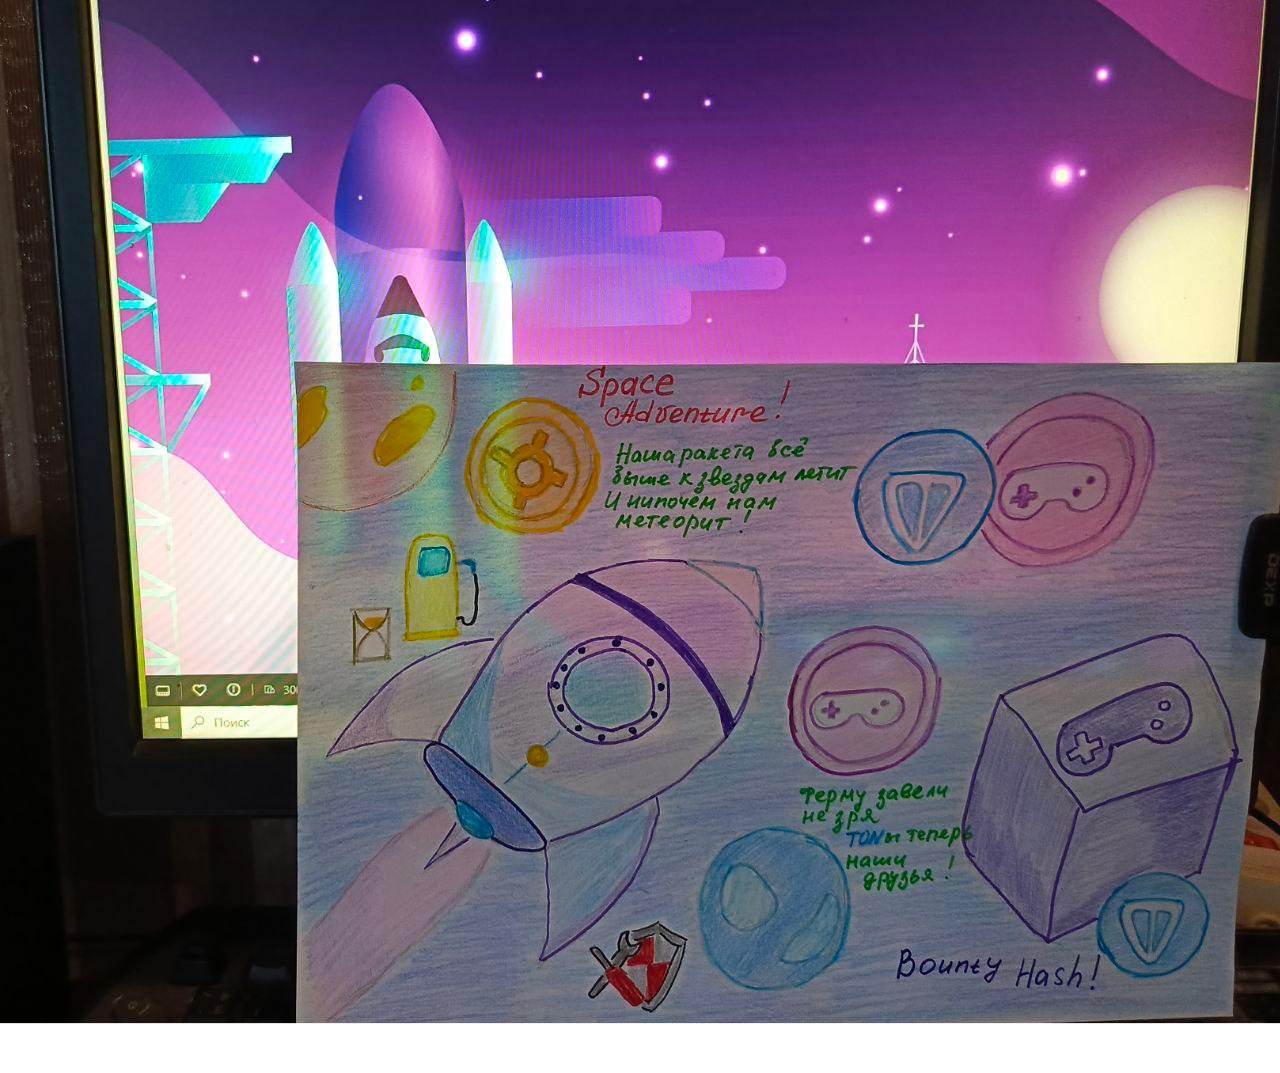 Space
Adventure!
Наша ракета всё
выше к звездам летит
И нипочём нам
метеорит!
Ферму завели
не зря
TONы теперь
наши
друзья!
Bounty Hash!
Поиск
DEXP